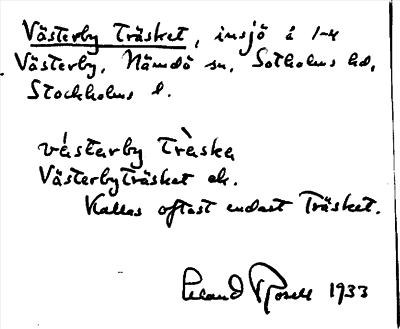 Västerby Träsket, insjö å 1-4
Västerby, Nämdö sn, Sotholms hd,
Stockholms l.
västarby Träska
Västerbyträsket ek.
Kallas oftast endast Träsket.
Rosell 1933